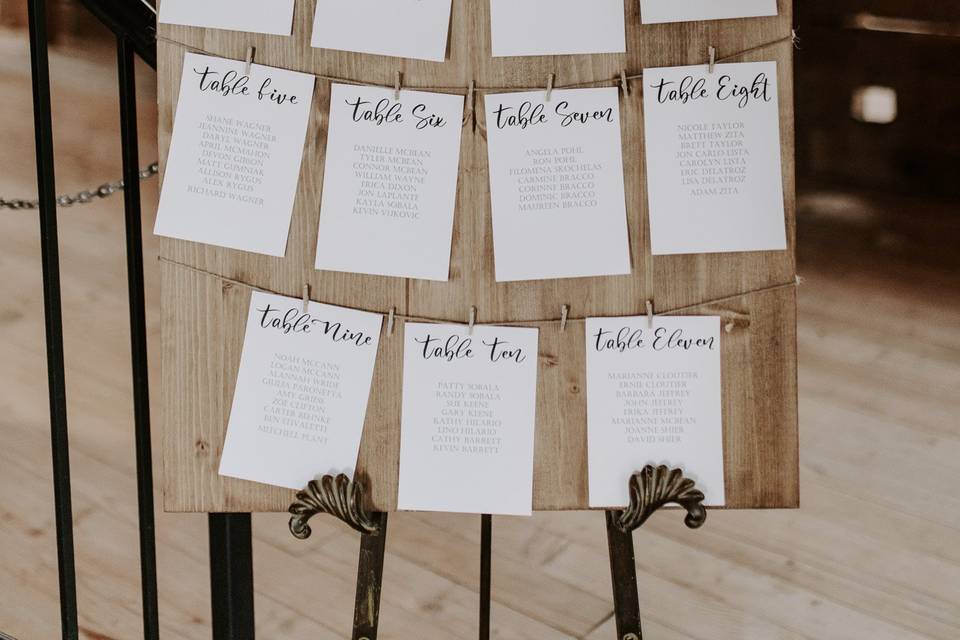 Table five
SHANE WAGNER
JEANNINE WAGNER
DARYL WAGNER
APRIL MCMAHON
DEVON GIBSON
MATT GUMNIAK
ALLISON RYGUS
ALEX RYGUS
RICHARD WAGNER
Table Six
DANIELLE MCBEAN
TYLER MCBEAN
CONNOR MCBEAN
WILLIAM WAYNE
ERICA DIXON
JON LAPLANTE
KAYLA SOBALA
KEVIN VIJKOVIC
Table Seven
ANGELA POHL
RON POHL
FILOMENA SKOCHELAS
CARMINE BRACCO
CORINNE BRACCO
DOMINIC BRACCO
MAUREEN BRACCO
Table Eight
NICOLE TAYLOR
MATTHEW ZITA
BRETT TAYLOR
JON CARLO LISTA
CAROLYN LISTA
ERIC DELATROZ
LISA DELATROZ
ADAM ZITA
Table Nine
NOAH MCCANN
LOGAN MCCANN
ALANNAH WRIDE
GIULIA PARONETTA
AMY GRIESE
ZOE CLIFTON
CARTER BEHNKE
BEN ETIVALETTE
MITCHELL PLANT
Table Ten
PATTY SOBALA
RANDY SOBALA
SUE KEENE
GARY KEENE
KATHY HILARIO
LINO HILARIO
CATHY BARRETT
KEVIN BARRETT
Table Eleven
MARIANNE CLOUTIER
ERNIE CLOUTIER
BARBARA JEFFREY
JOHN JEFFREY
ERIKA JEFFREY
MARIANNE MCBEAN
JOANNE SHIER
DAVID SHIER